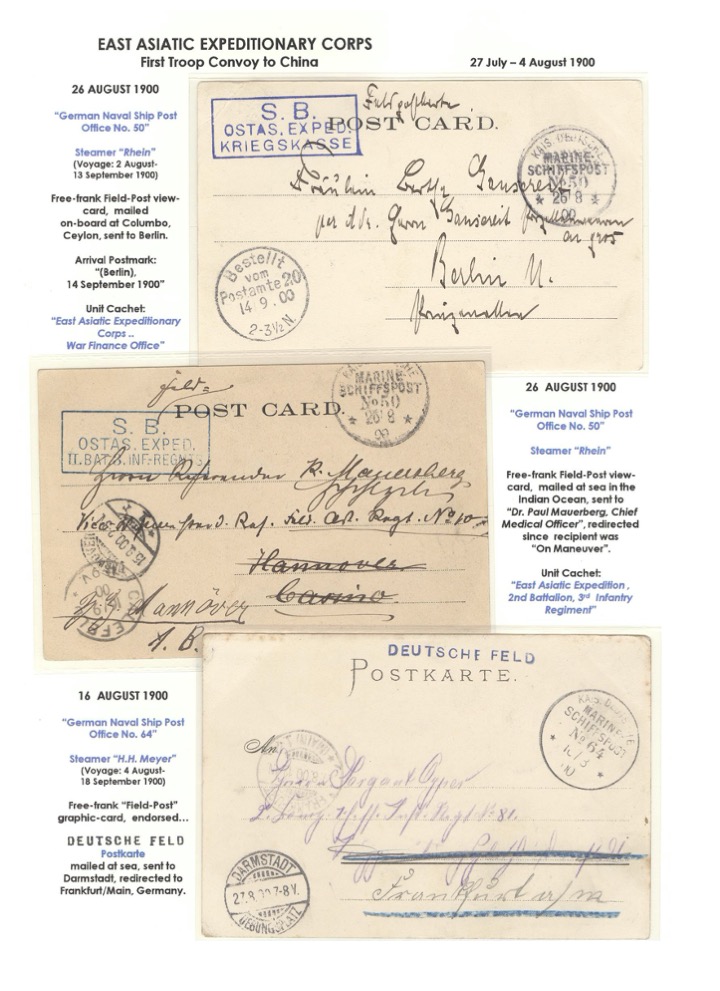 EAST ASIATIC EXPEDITIONARY CORPS
First Troop Convoy to China
27 July – 4 August 1900
26 AUGUST 1900
"German Naval Ship Post
Office No. 50"
Steamer "Rhein"
(Voyage: 2 August-
13 September 1900)
Free-frank Field-Post view-
card, mailed
on-board at Columbo,
Ceylon, sent to Berlin.
Arrival Postmark:
"(Berlin),
14 September 1900"
Unit Cachet:
"East Asiatic Expeditionary
Corps ..
War Finance Office"
S. B.
OSTAS. EXPED.
KRIEGSKASSE
Feldpostkarte
POST CARD.
KAIS. DEUTSCHE
MARINE-
SCHIFFSPOST
No 50
* 26 8 *
00
Fräulein Bertha Gansereit
per adr. Herrn Gansereit
en gros
Berlin N.
Prinzenallee
Bestellt
vom
Postamte 20
14. 9. 00
2-3½N.
Feld=
POST CARD.
MARINE-
SCHIFFSPOST
No 50
* 26 8 *
00
S. B.
OSTAS. EXPED.
II. BAT. 3. INF-REGMTS
Herrn Referendar P. Mauersberg
Feld. Art. Regt. No 10
Hannover
Casino
Hannover
A. B.
26 AUGUST 1900
"German Naval Ship Post
Office No. 50"
Steamer "Rhein"
Free-frank Field-Post view-
card, mailed at sea in the
Indian Ocean, sent to
"Dr. Paul Mauerberg, Chief
Medical Officer", redirected
since recipient was
"On Maneuver".
Unit Cachet:
"East Asiatic Expedition ,
2nd Battalion, 3rd Infantry
Regiment"
16 AUGUST 1900
"German Naval Ship Post
Office No. 64"
Steamer "H.H. Meyer"
(Voyage: 4 August-
18 September 1900)
Free-frank "Field-Post"
graphic-card, endorsed...
DEUTSCHE FELD
Postkarte
mailed at sea, sent to
Darmstadt, redirected to
Frankfurt/Main, Germany.
DEUTSCHE FELD
POSTKARTE.
KAIS. DEUTSCHE
MARINE-
SCHIFFSPOST
No 64
An
Herrn Sergant
Inft. Regt No 81.
Frankfurt a/m
DARMSTADT
27.8.00.7-8V.
UEBUNGSPLATZ